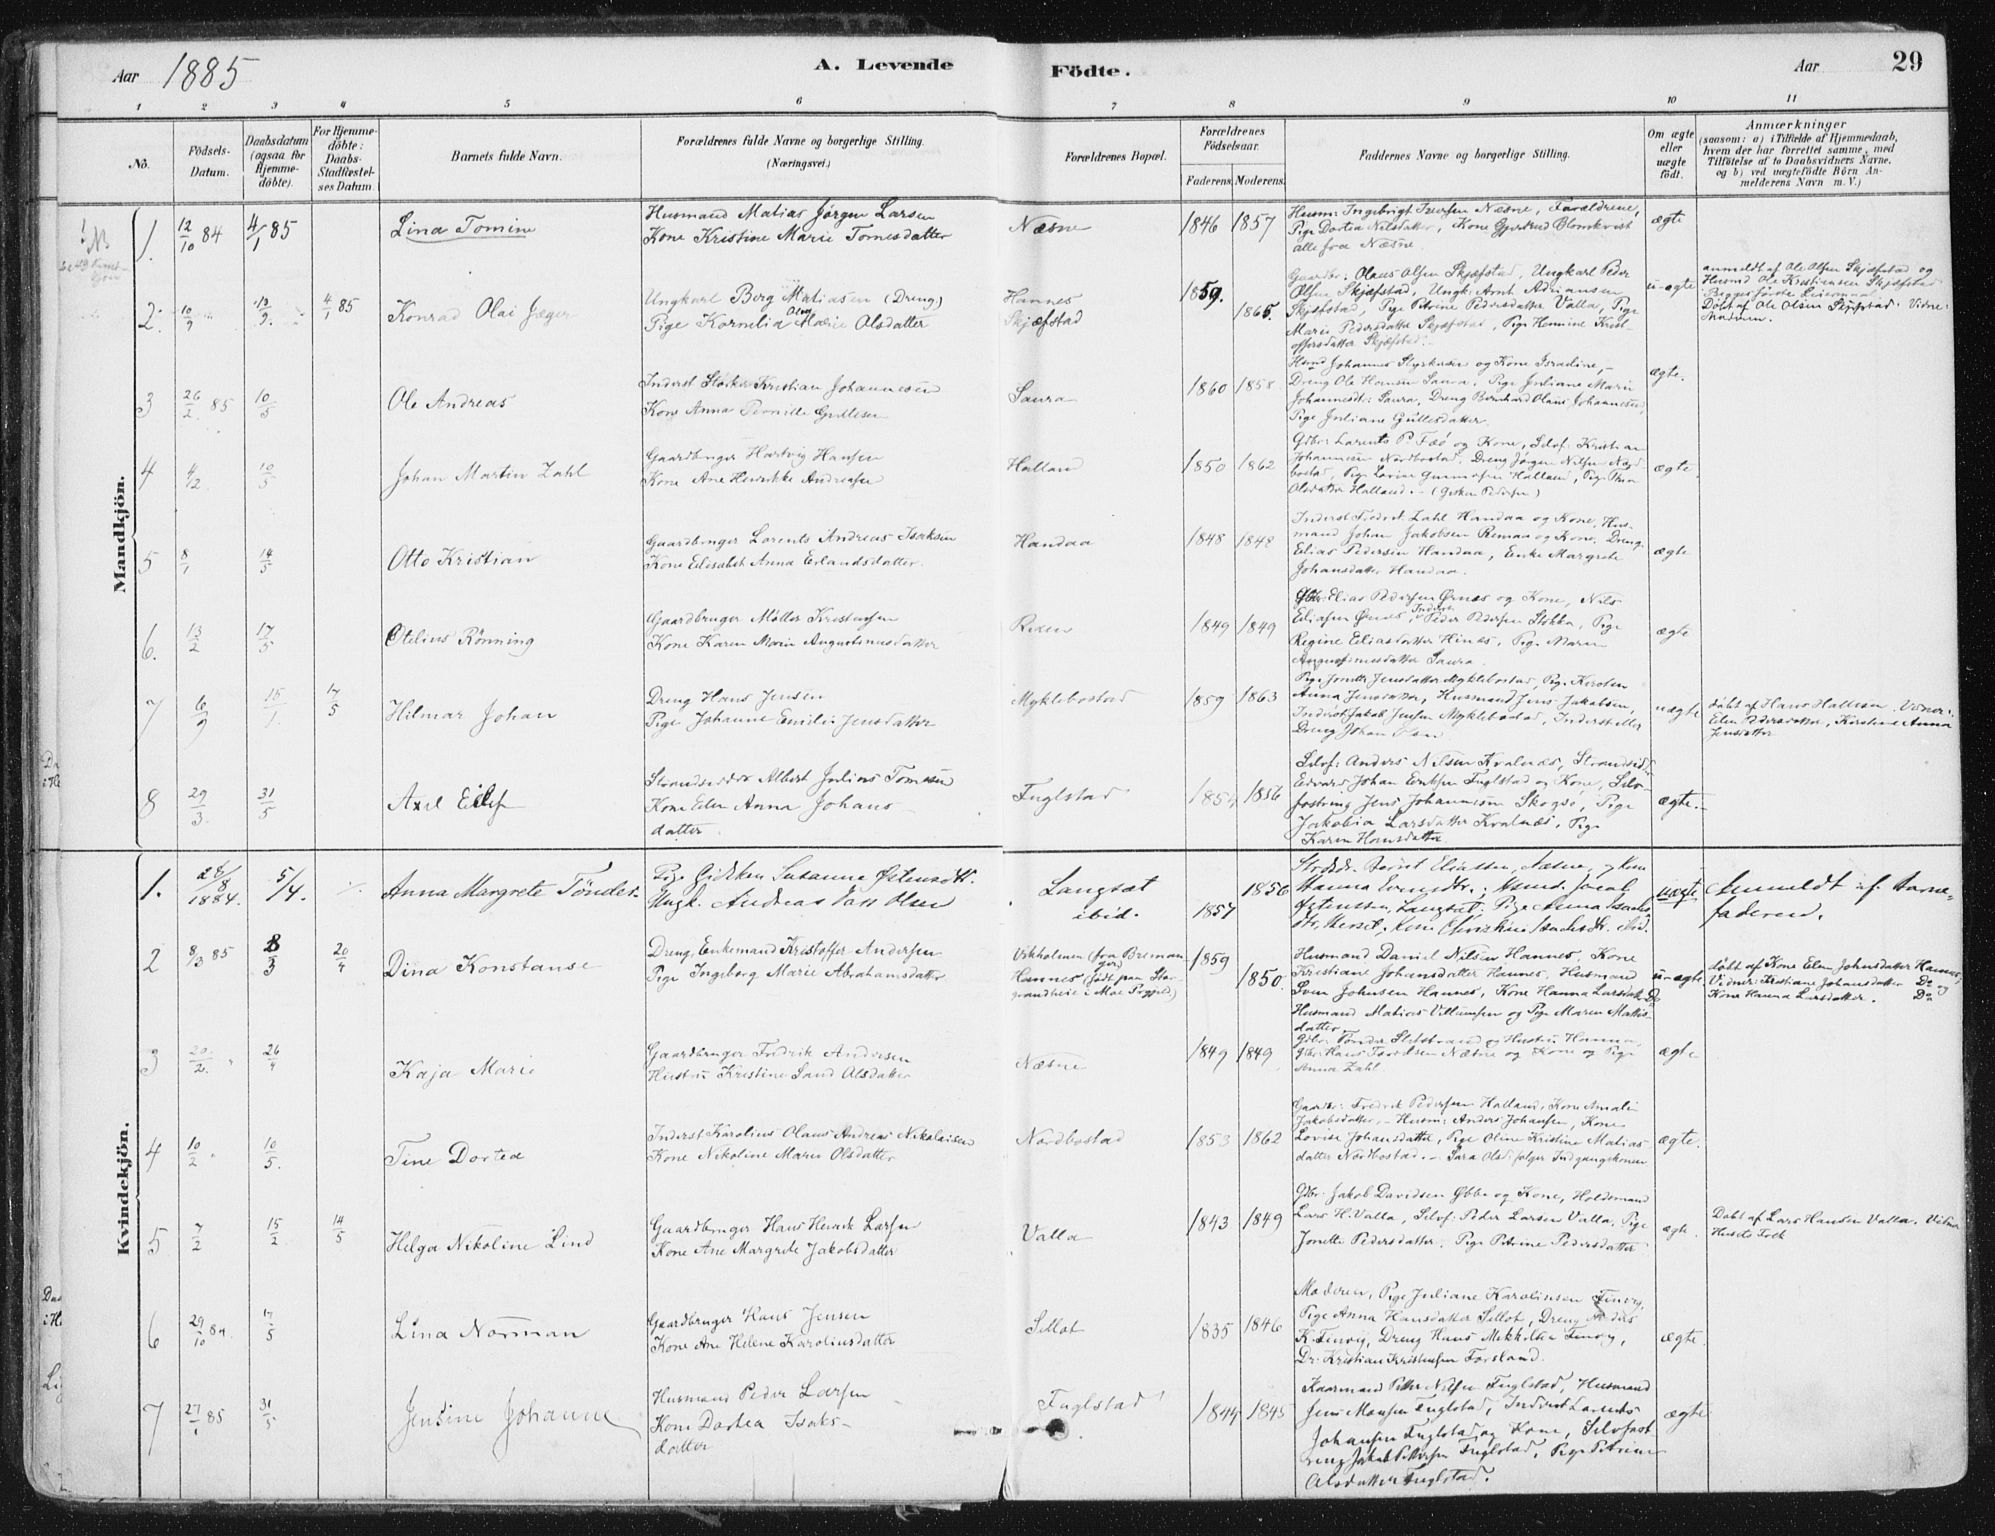 Aar 1885
A. Levende
Födte.
Aar
29
1 2 3 4 5 6 7 8 9 10 11
Nö.
Födsels-
Datum.
Daabsdatum
(ogsaa for
Hjemme-
döbte).
For Hjemme-
döbte:
Daabs-
Stadfæstel-
ses Datum.
Barnets fulde Navn.
Forældrenes fulde Navne og borgerlige Stilling.
(Næringsvei.)
Forældrenes Bopæl.
Forældrenes
Födselsaar.
Faderens. Moderens.
Faddernes Navne og borgerlige Stilling.
Om ægte
eller
uægte
födt.
Anmærkninger
(saasom: a) i Tilfælde af Hjemmedaab,
hvem der har forrettet samme, med
Tilföielse af to Daabsvidners Navne,
og b) ved uægtefödte Börn An-
melderens Navn m. V.)
Mandkjön.
1. 12/10 84 4/1 85 Lina Tomine
Husmand Matias Jørgen Larsen
Kone Kristine Marie Tomesdatter
Næsne 1846 1857
Husm: Ingebrigt Iversen Næsne, Forældrene,
Pige Dortea Nilsdatter, Kone Gjertrud Blomkvist
alle fra Næsne
ægte
2. 10/9 13/9 4/1 85 Konrad Olai Jæger
Ungkarl Berg Matiasen (Dreng)
Pige Kornelia Marie Olsdatter
Hannes
Skjæfstad
1859. 1865.
Gaardbr: Olaus Olsen Skjæfstad, Ungkarl Peder
Olsen Skjæfstad, Ungk: Arnt Adriansen
Skjæfstad, Pige Petrine Pedersdatter Valla, Pige
Marie Pedersdatter Skjæfstad, Pige Hennine Krist-
offersdatter Skjæfstad.
u-ægte
anmeldt af Ole Olsen Skjæfstad og
Husmd Ole Kristiansen Skjæfstad
Døbt af Ole Olsen Skjæfstad. Vidne:
Madmen.
3 26/2 85 10/5 Ole Andreas
Inderst Kristian Johannesen
Kone Anna Pernille Gullesen
Saura 1860 1858
Husmd Johannes Styrkesen og Kone Isradine,
Dreng Ole Hansen Saura, Pige Juliane Marie
Johannesdt: Saura, Dreng Bernhard Olaus Johannesen,
Pige Juliane Gullesdatter.
ægte.
4 4/2. 10/5 Johan Martin Zahl
Gaardbruger Hartvig Hansen
Kone Ane Henrikke Andreasen
Halland 1850 1862
Gdbr: Larents P. Fæö og Kone, Selvf: Kristian
Johannesen Nordbostad, Dreng Jørgen Nilsen Nord-
bostad, Pige Lovine Gunnarsen Halland, Pige Thea
Olsdatter Halland. - (Gisken Pedersen)
ægte.
5 8/1 14/5 Otto Kristian
Gaardbruger Lorents Andreas Isaksen
Kone Elisabet Anna Erlandsdatter.
Handaa 1848 1848
Inderst Fredrik Zahl Handaa og Kone, Hus-
mand Johan Jakobsen Remen og Kone, Dreng
Elias Pedersen Handaa, Enke Margrete
Johansdatter Handaa.
ægte
6. 13/2 17/5 Otelius Rönning
Gaardbruger Møller Kristensen
Kone Karen Marie Augustinusdatter
Remen 1849 1849
Gdbr: Elias Pedersen Ørnes og Kone, Nils
Eliasen Ørnes, Inderst Peder Pedersen Stokka, Pige
Regine Eliasdatter Hines, Pige Maren
Augustinusdatter Saura.
ægte
7 6/9 15/1 17/5 Hilmar Johan
Dreng Hans Jensen
Pige Johanne Emilie Jensdatter
Myklebostad 1859 1863
Pige Jonette Jensdatter Myklebostad, Pige Kirsten
Anna Jensdatter, Husmand Jens Jakobsen,
Inderst Jakob Jensen Myklebostad, Inderst eller
Dreng Johan Olsen
uægte
døbt af Hans Hallesen. Vidner:
Elen Pedersdatter, Kirstine Anna
Jensdatter
8 29/3. 31/5 Axel Eilif
Strandsidder Albert Julius Tomesen
Kone Elen Anna Johans
datter.
Fuglstad 1854 1856
Selvf: Anders Nilsen Kvalnæs, Strandsid:
Edvard Johan Eriksen Fuglstad og Kone, Selv-
fostring Jens Johannesen Skogsö, Pige
Jakobia Larsdatter Kvalnæs, Pige
Karen Hansdatter
ægte.
Kvindekjön.
1. 28/8 1884. 5/4. Anna Margrete Tönder.
Pige Gidsken Susanna Østensdtr.
Ungk. Andreas Olsen
Langsæt
ibid.
1857 1856
uægte
Anmeldt af Barne-
faderen.
2 8/3 85 8/3 20/4 Dina Konstanse
Dreng, Enkemand Kristoffer Andersen
Pige Ingeborg Marie Abrahamsdatter
Vikholmen (fra Bremanger)
Hannes (født paa Stor-
grandheie i Moe Prgjeld)
1859 1850.
Husmand Daniel Nilsen Hannes, Kone
Kristiane Johansdatter Hannes, Husmand
Sven Johnsen Hannes, Kone Hanna Larsdatter Do
Husmand Matias Villumsen og Pige Maren Mattis-
datter
u-ægte
døbt af Kone Elen Johnsdatter Hannes,
Vidner: Kristiane Johansdatter Do og
Kone Hanna Larsdatter. Do
3 20/2. 26/4 Kaja Marie
Gaardbruger Fredrik Andersen
Hustru Kristine Sand Olsdatter
Næsne 1849 1849
Gdbr: Tönder Sletstrand og Hustru Hanna,
Gdbr: Hans Næsne og Kone og Pige
Anna Zahl
ægte
4 10/2 10/5. Tine Dortea
Inderst Karolius Olaus Andreas Nikolaisen
Kone Nikoline Marie Olsdatter
Nordbostad 1853 1862
Gaardbr: Fredrik Pedersen Halland, Kone Amalie
Jakobsdatter, - Husm: Anders Johansen, Kone
Lovise Johansdatter, Pige Oline Kristine Matias-
datter Nordbostad. - Sara Olsd: følger Indgangskonen
ægte.
5 7/2 15/2 14/5 Helga Nikoline Lind
Gaardbruger Hans Henrik Larsen
Kone Ane Margrete Jakobsdatter
Valla 1843 1849
Gdbr: Jakob Davidsen Øbbe og Kone, Holdsmand
Lars H. Valla, Selvf: Peder Larsen Valla, Pige
Jonette Pedersdatter. Pige Petrine Pedersdatter
ægte.
Døbt af Lars Hansen Valla. Vidner
Husets Folk
6 29/10 84. 17/5 Lina Norman
Gaardbruger Hans Jensen
Kone Ane Helene Karoliusdatter
Selløt 1835 1846
Moderen, Pige Juliane Karolinsen Finvig,
Pige Anna Hansdatter Selløt, Dreng Anders
K. Finvig, Dreng Hans Mikkelsen Finvig,
Dr: Kristian Kristensen Forsland.
ægte.
7 27/1 85 31/5 Jensine Johanne
Husmand Peder Larsen
Kone Dortea Isaks-
datter
Fuglstad 1844 1845
Kaarmand Petter Nilsen Fuglstad, Husmand
Jens Monsen Fuglstad, Inderst Larents
Johansen Fuglstad og Kone, Selvfost-
reng Jakob Pettersen Fuglstad, Pige Petrine
Olsdatter Fuglstad.
ægte